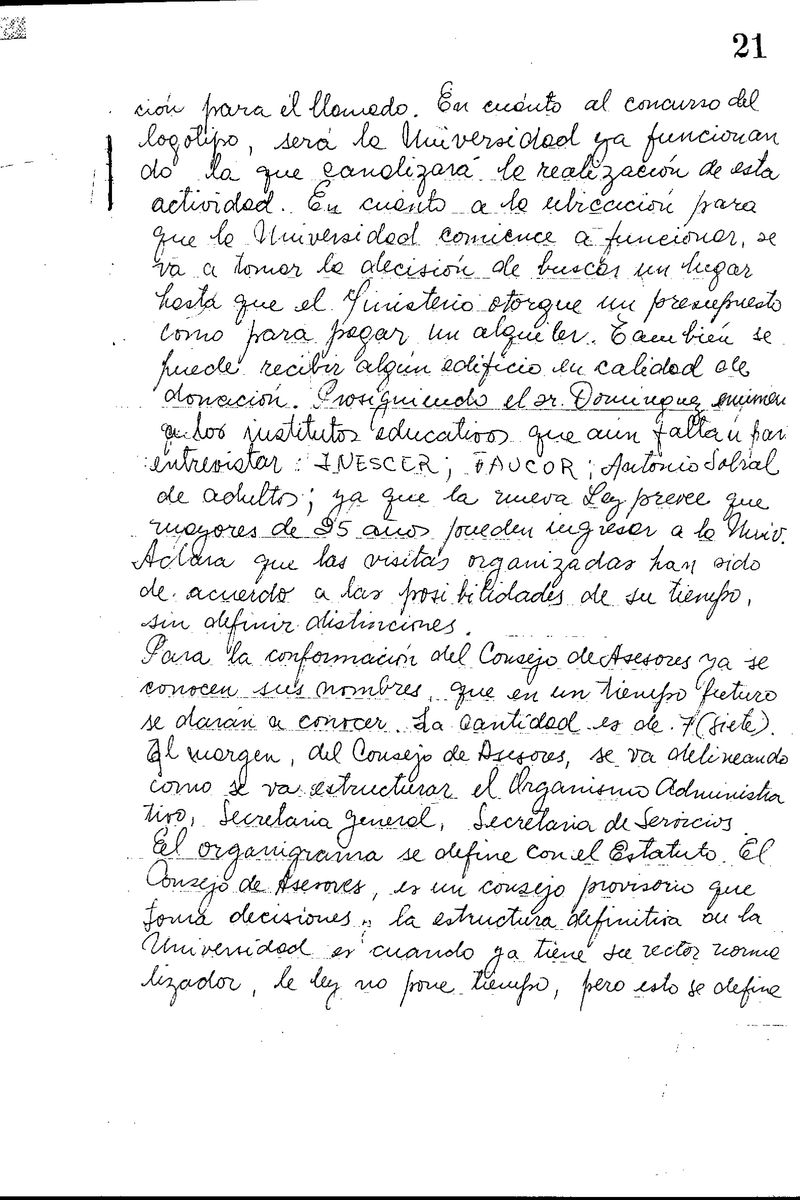 21
ción para el llamado. En cuánto al concurso del
logotipo, será la Universidad ya funcionan
do la que canalizará la realización de esta
actividad. En cuánto a la ubicación para
que la Universidad comience a funcionar, se
va a tomar la decisión de buscar un lugar
hasta que el Ministerio otorgue un presupuesto
como para pagar un alquiler. También se
puede recibir algún edificio en calidad de
donación. Prosiguiendo el sr. Dominguez enumera
a los institutos educativos que aún faltan por
entrevistar: INESCER; FAUCOR; Antonio Sobral
de adultos; ya que la nueva Ley prevee que
mayores de 25 años pueden ingresar a la Univ.
Aclara que las visitas organizadas han sido
de acuerdo a las posibilidades de su tiempo,
sin definir distinciones.
Para la conformación del Consejo de Asesores ya se
conocen sus nombres, que en un tiempo futuro
se darán a conocer. La cantidad es de 7 (siete).
Al margen, del Consejo de Asesores, se va delineando
como se va estructurar el Organismo Administra
tivo, Secretaria general, Secretaria de Servicios.
El organigrama se define con el Estatuto. El
Consejo de Asesores, es un consejo provisorio que
toma decisiones, la estructura definitiva de la
Universidad es cuando ya tiene su rector norma
lizador, le ley no pone tiempo, pero esto se define